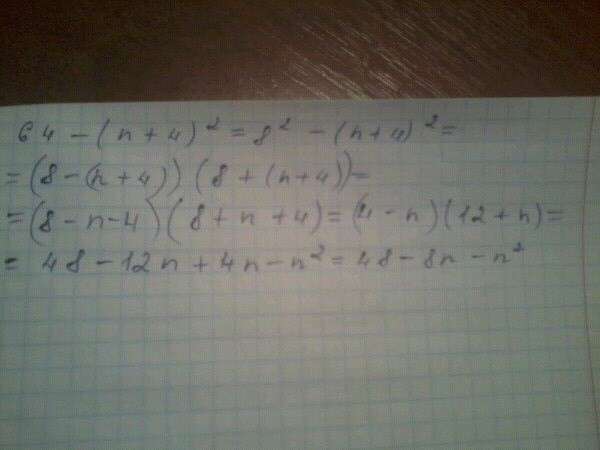 64 - (n + 4)² = 8² - (n+4)² =
= (8 - (n + 4)) (8 + (n+4)) =
= (8 - n - 4) (8 + n + 4) = (4 - n) (12 + n) =
= 48 - 12n + 4n - n² = 48 - 8n - n²